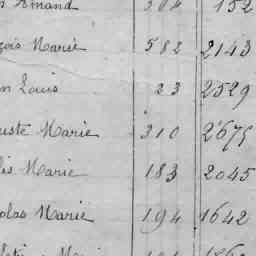 Armand 304 152
çois Marie 582 2143
n Louis 23 2529
uste Marie 310 2675
lis Marie 183 2045
olas Marie 194 1642